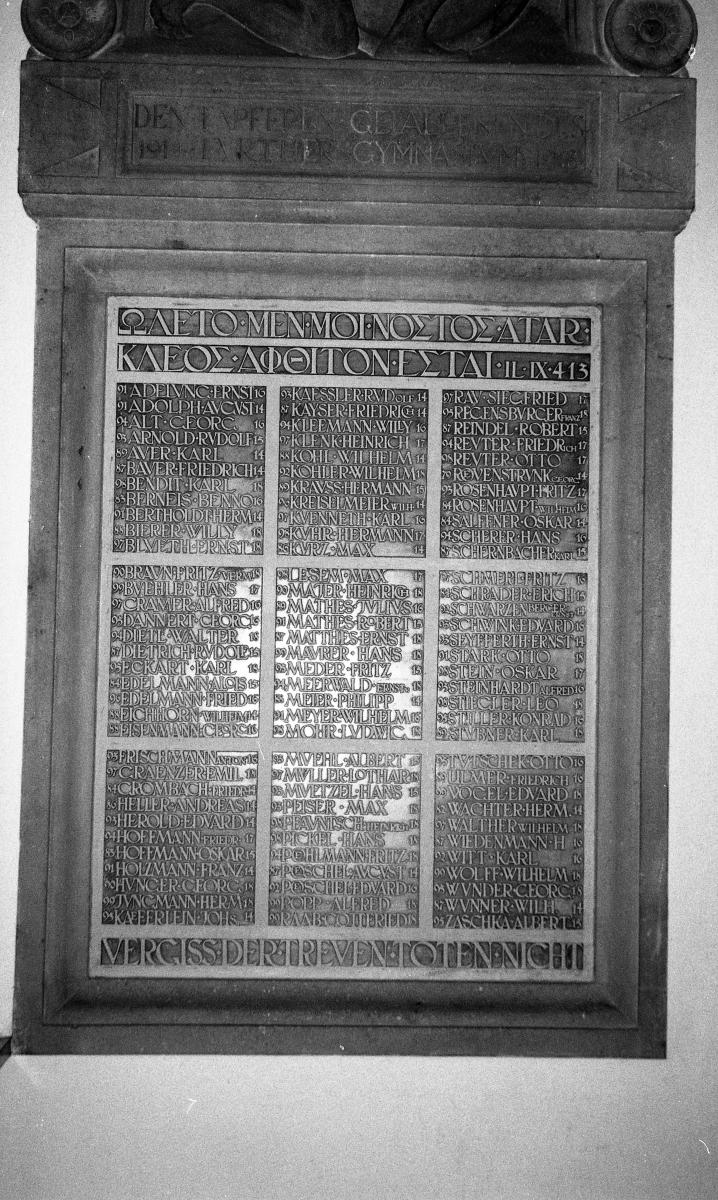 DEN TAPFEREN GEFALLENEN DES
FVRTHER GYMNASIVMS
ΩΛΕΤΟ·ΜΕΝ·ΜΟΙ·ΝΟΣΤΟΣ·ΑΤΑΡ·
ΚΛΕΟΣ·ΑΦΘΙΤΟΝ·ΕΣΤΑΙ·IL·IX·413
91 ADELVNG·ERNST 16
91 ADOLPH·AVGVST 14
94 ALT·GEORG 16
93 ARNOLD·RVDOLF 15
89 AVER·KARL 14
87 BAVER·FRIEDRICH 14
98 BENDIT·KARL 18
83 BERNEIS·BENNO 16
91 BERTHOLDT·HERM 14
88 BIERER·WILLY 18
97 BLVETH·ERNST 18
93 KAESSLER·RVDOLF 14
87 KAYSER·FRIEDRICH 14
94 KLEEMANN·WILLY 16
97 KLENK·HEINRICH 17
88 KOHL·WILHELM 14
92 KOHLER·WILHELM 18
89 KRAVSS·HERMANN 15
KREISELMEIER·WILH 14
97 KVENNETH·KARL 16
94 KVHR·HERMANN 17
86 KVRZ·MAX 14
97 RAV·SIEGFRIED 17
95 REGENSBVRGER FRANZ 18
87 REINDEL·ROBERT 15
94 REVTER·FRIEDRICH 17
98 REVTER·OTTO 17
ROVENSTRVNK GEORG 14
95 ROSENHAVPT·FRITZ 17
84 ROSENHAVPT·WILHELM 16
84 SALFFNER·OSKAR 14
94 SCHERER·HANS 16
SCHERNBACHER KARL 15
99 BRAVN·FRITZ 18
99 BVEHLER·HANS 17
97 CRAMER·ALFRED 16
95 DANNERT·GEORG 16
94 DIETL·WALTER 18
87 DIETRICH·RVDOLF 16
95 ECKART·KARL 18
84 EDELMANN·ALOIS 15
95 EDELMANN·FRIED 15
88 EICHHORN·WILHELM 14
EISENMANN·GEORG 16
98 LESEM·MAX 17
99 MAJER·HEINRICH 18
MATHES·JVLIVS 16
MATHES·ROBERT 15
87 MATTHES·ERNST 18
99 MAVRER·HANS 18
MEDER·FRITZ 15
94 MEERWALD·ERNST 18
88 MEIER·PHILIPP 14
91 MEYER·WILHELM 18
MOHR·LVDWIG 18
SCHMERL·FRITZ 16
84 SCHRADER·ERICH 15
SCHWARZENBERGER ERNST 14
95 SCHWINK·EDVARD 16
SEYFFERTH·ERNST 14
91 STARK·OTTO 18
STEIN·OSKAR 17
95 STEINHARDT ALFRED 16
STIEGLER·LEO 18
STILLER·KONRAD 16
STVBNER·KARL 15
95 FRISCHMANN ANTON 16
97 GRAENZER·EMIL 18
84 GROMBACH·FRIEDR 14
86 HELLER·ANDREAS 14
93 HEROLD·EDVARD 14
94 HOFFMANN·FRIEDR 17
HOFFMANN·OSKAR 15
91 HOLZMANN·FRANZ 14
80 HVNGER·GEORG 18
99 JVNGMANN·HERM 18
94 KAEFERLEIN·JOHS 14
MVEHL·ALBERT 15
97 MVLLER·LOTHAR 18
MVETZEL·HANS 15
PEISER·MAX 18
PICKEL·HANS 18
94 POEHLMANN·FRITZ 18
POSCHEL·AVGVST 14
POSCHEL·EDVARD 16
POPP·ALFRED 18
RAAB·GOTTFRIED 18
TVTSCHEK·OTTO 16
ULMER·FRIEDRICH 16
VOGEL·EDVARD 18
WACHTER·HERM 14
97 WALTHER WILHELM 18
87 WIEDENMANN·H 16
92 WITT·KARL 16
99 WOLFF·WILHELM 18
95 WVNDER·GEORG 18
87 WVNNER·WILH 14
95 ZASCHKA·ALBERT 15
VERGISS·DER·TREVEN·TOTEN·NICHT